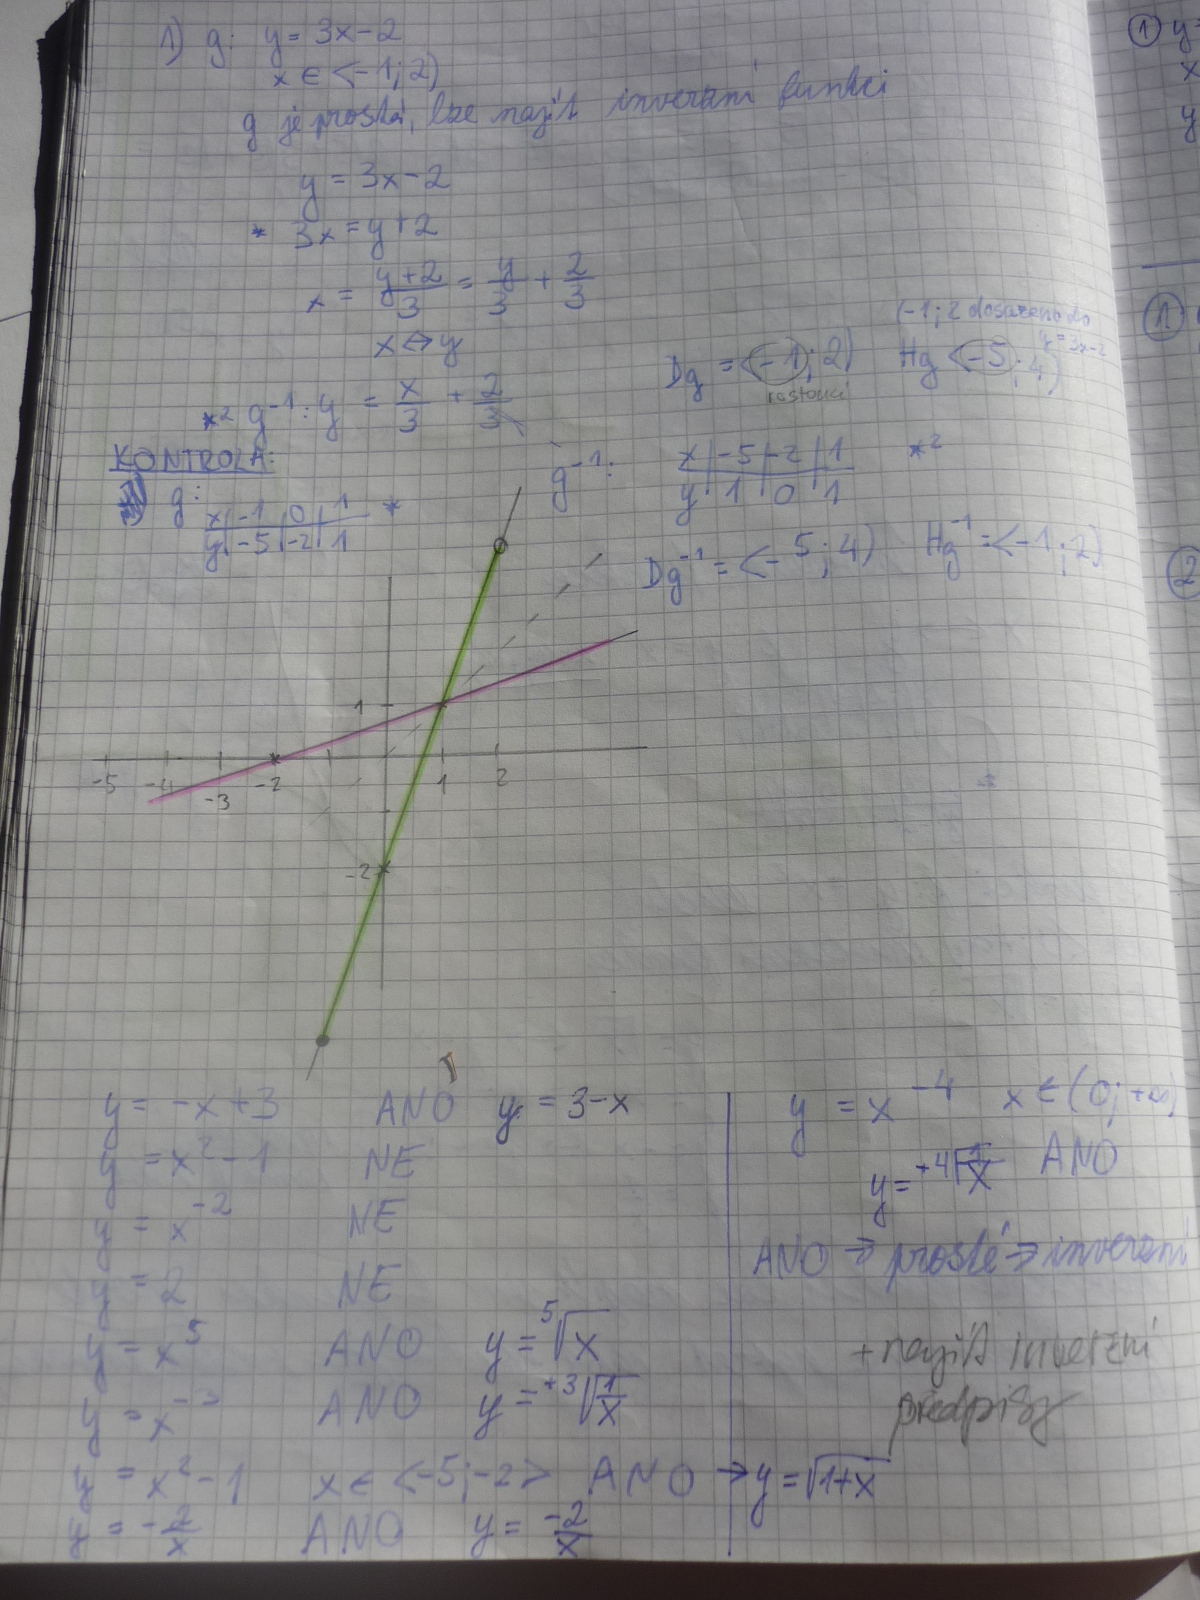 1) g: y = 3x-2
x ∈ <-1; 2)
g je prostá, lze najít inverzní funkci
y = 3x-2
* 3x = y+2
x = (y+2)/3 = y/3 + 2/3
x ↔ y
*² g⁻¹: y = x/3 + 2/3
(-1; 2 dosazeno do
y = 3x-2
Dg = <-1; 2) Hg <-5; 4)
rostoucí
KONTROLA:
g:
x | -1 | 0 | 1 *
y | -5 | -2 | 1
g⁻¹:
x | -5 | -2 | 1 *²
y | 1 | 0 | 1
Dg⁻¹ = <-5; 4) Hg⁻¹ = <-1; 2)
1
-5 -4 -3 -2 1 2
-2
y = -x+3 ANO y = 3-x
y = x²-1 NE
y = x⁻² NE
y = 2 NE
y = x⁵ ANO y = ⁵√x
y = x⁻³ ANO y = +³√(1/x)
y = x²-1 x ∈ <-5; -2> ANO → y = √(1+x)
y = -2/x ANO y = -2/x
y = x⁻⁴ x ∈ (0; +∞)
y = +⁴√(1/x) ANO
ANO → prosté → inverzní
+ najít inverzní
předpisy
① y=
x
y
①
②